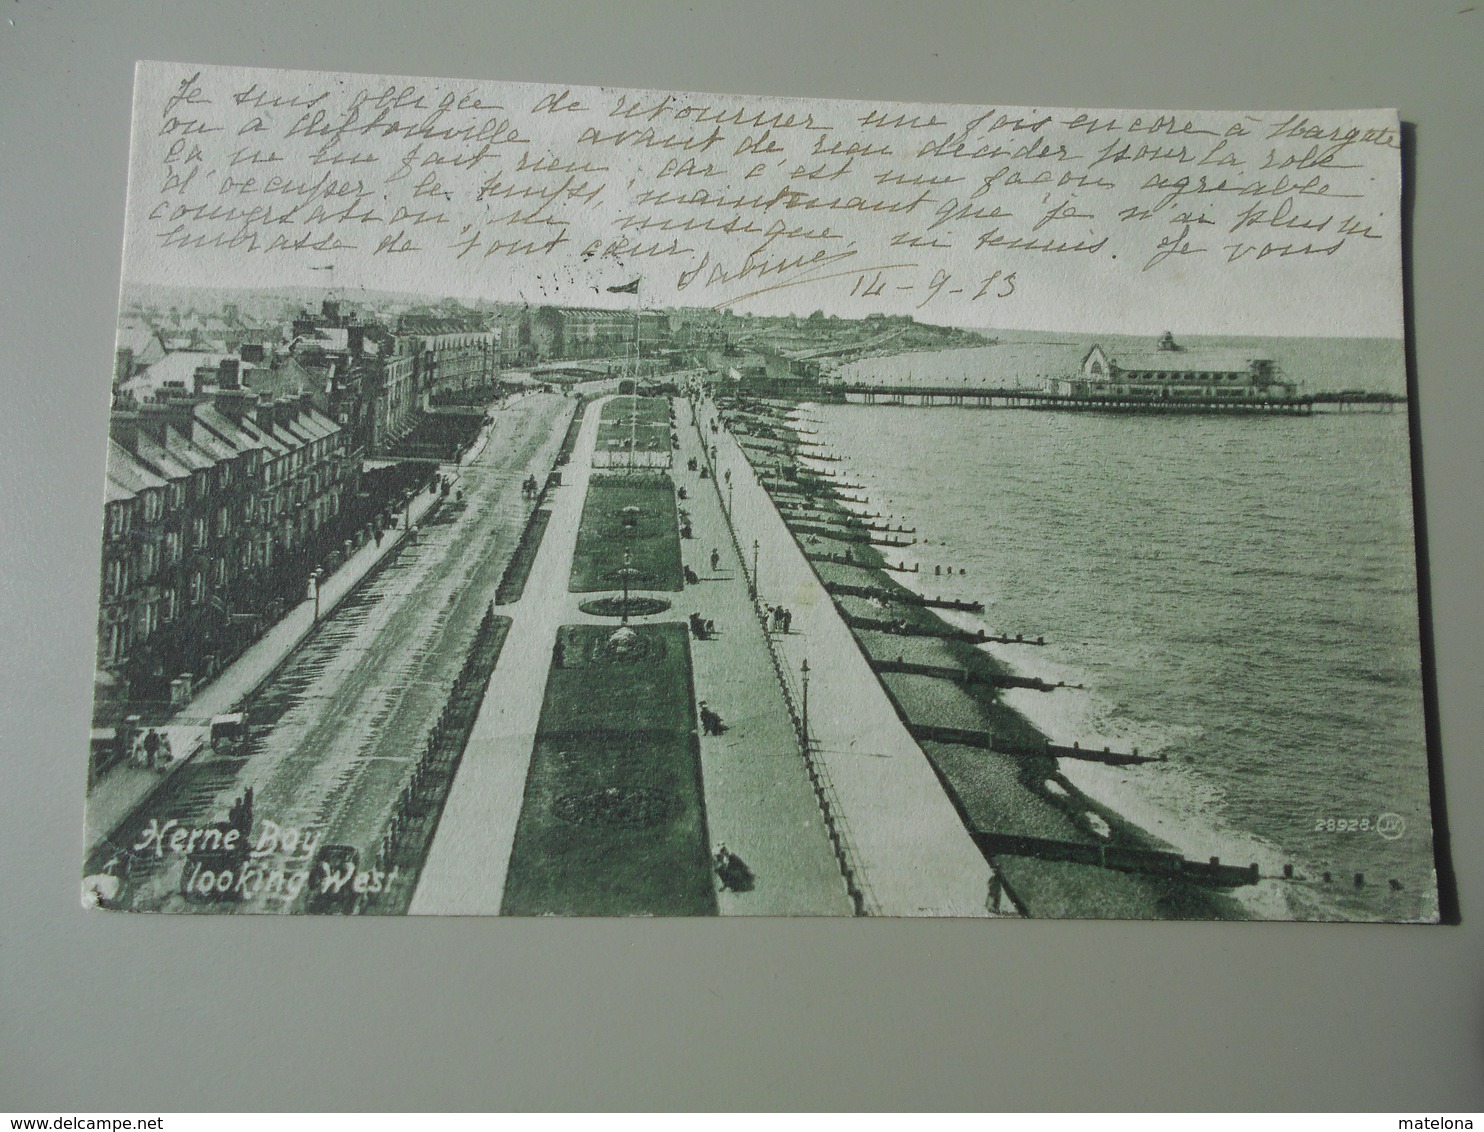 Je suis obligée de retourner une fois encore à Margate
ou à Cliftonville avant de rien décider pour la robe
Ça ne me fait rien car c'est une façon agréable
d'occuper le temps, maintenant que je n'ai plus ni
conversation, ni musique, ni tennis. Je vous
embrasse de tout cœur
14-9-13
Herne Bay
looking West
28928. JV
http://www.delcampe.net
matelona